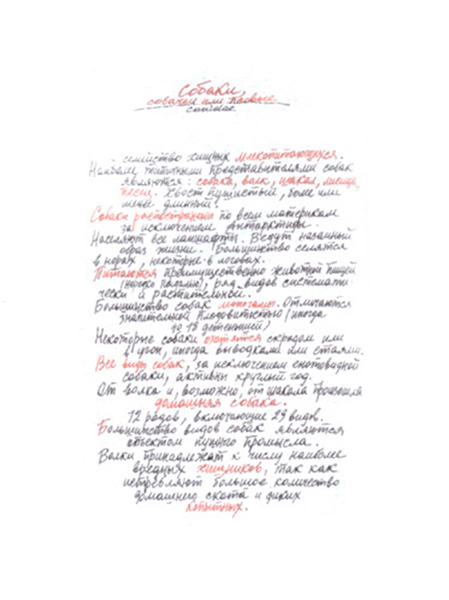 Собаки,
собачьи или псовые
canidae
- семейство хищных млекопитающихся.
Наиболее типичными представителями собак
являются: собака, волк, шакал, лисица,
песец. Хвост пушистый, более или
менее длинный.
Собаки распостранены по всем материкам
за исключением Антарктиды.
Населяют все ландшафты. Ведут наземный
образ жизни. Большинство селятся
в норах, некоторые в логовах.
Питаются преимущественно животной пищей
(падалью), ряд видов системати-
чески и растительной.
Большинство собак моногамы. Отличаются
значительной плодовитостью (иногда
до 18 детенышей)
Некоторые собаки охотятся скрадом или
в угон, иногда выводками или стаями.
Все виды собак, за исключением енотовидной
собаки, активны круглый год.
От волка и, возможно, от шакала произошла
домашняя собака.
12 родов, включающие 29 видов.
Большинство видов собак являются
объектом пушного промысла.
Волки принадлежат к числу наиболее
вредных хищников, так как
истребляют большое количество
домашнего скота и диких
копытных.